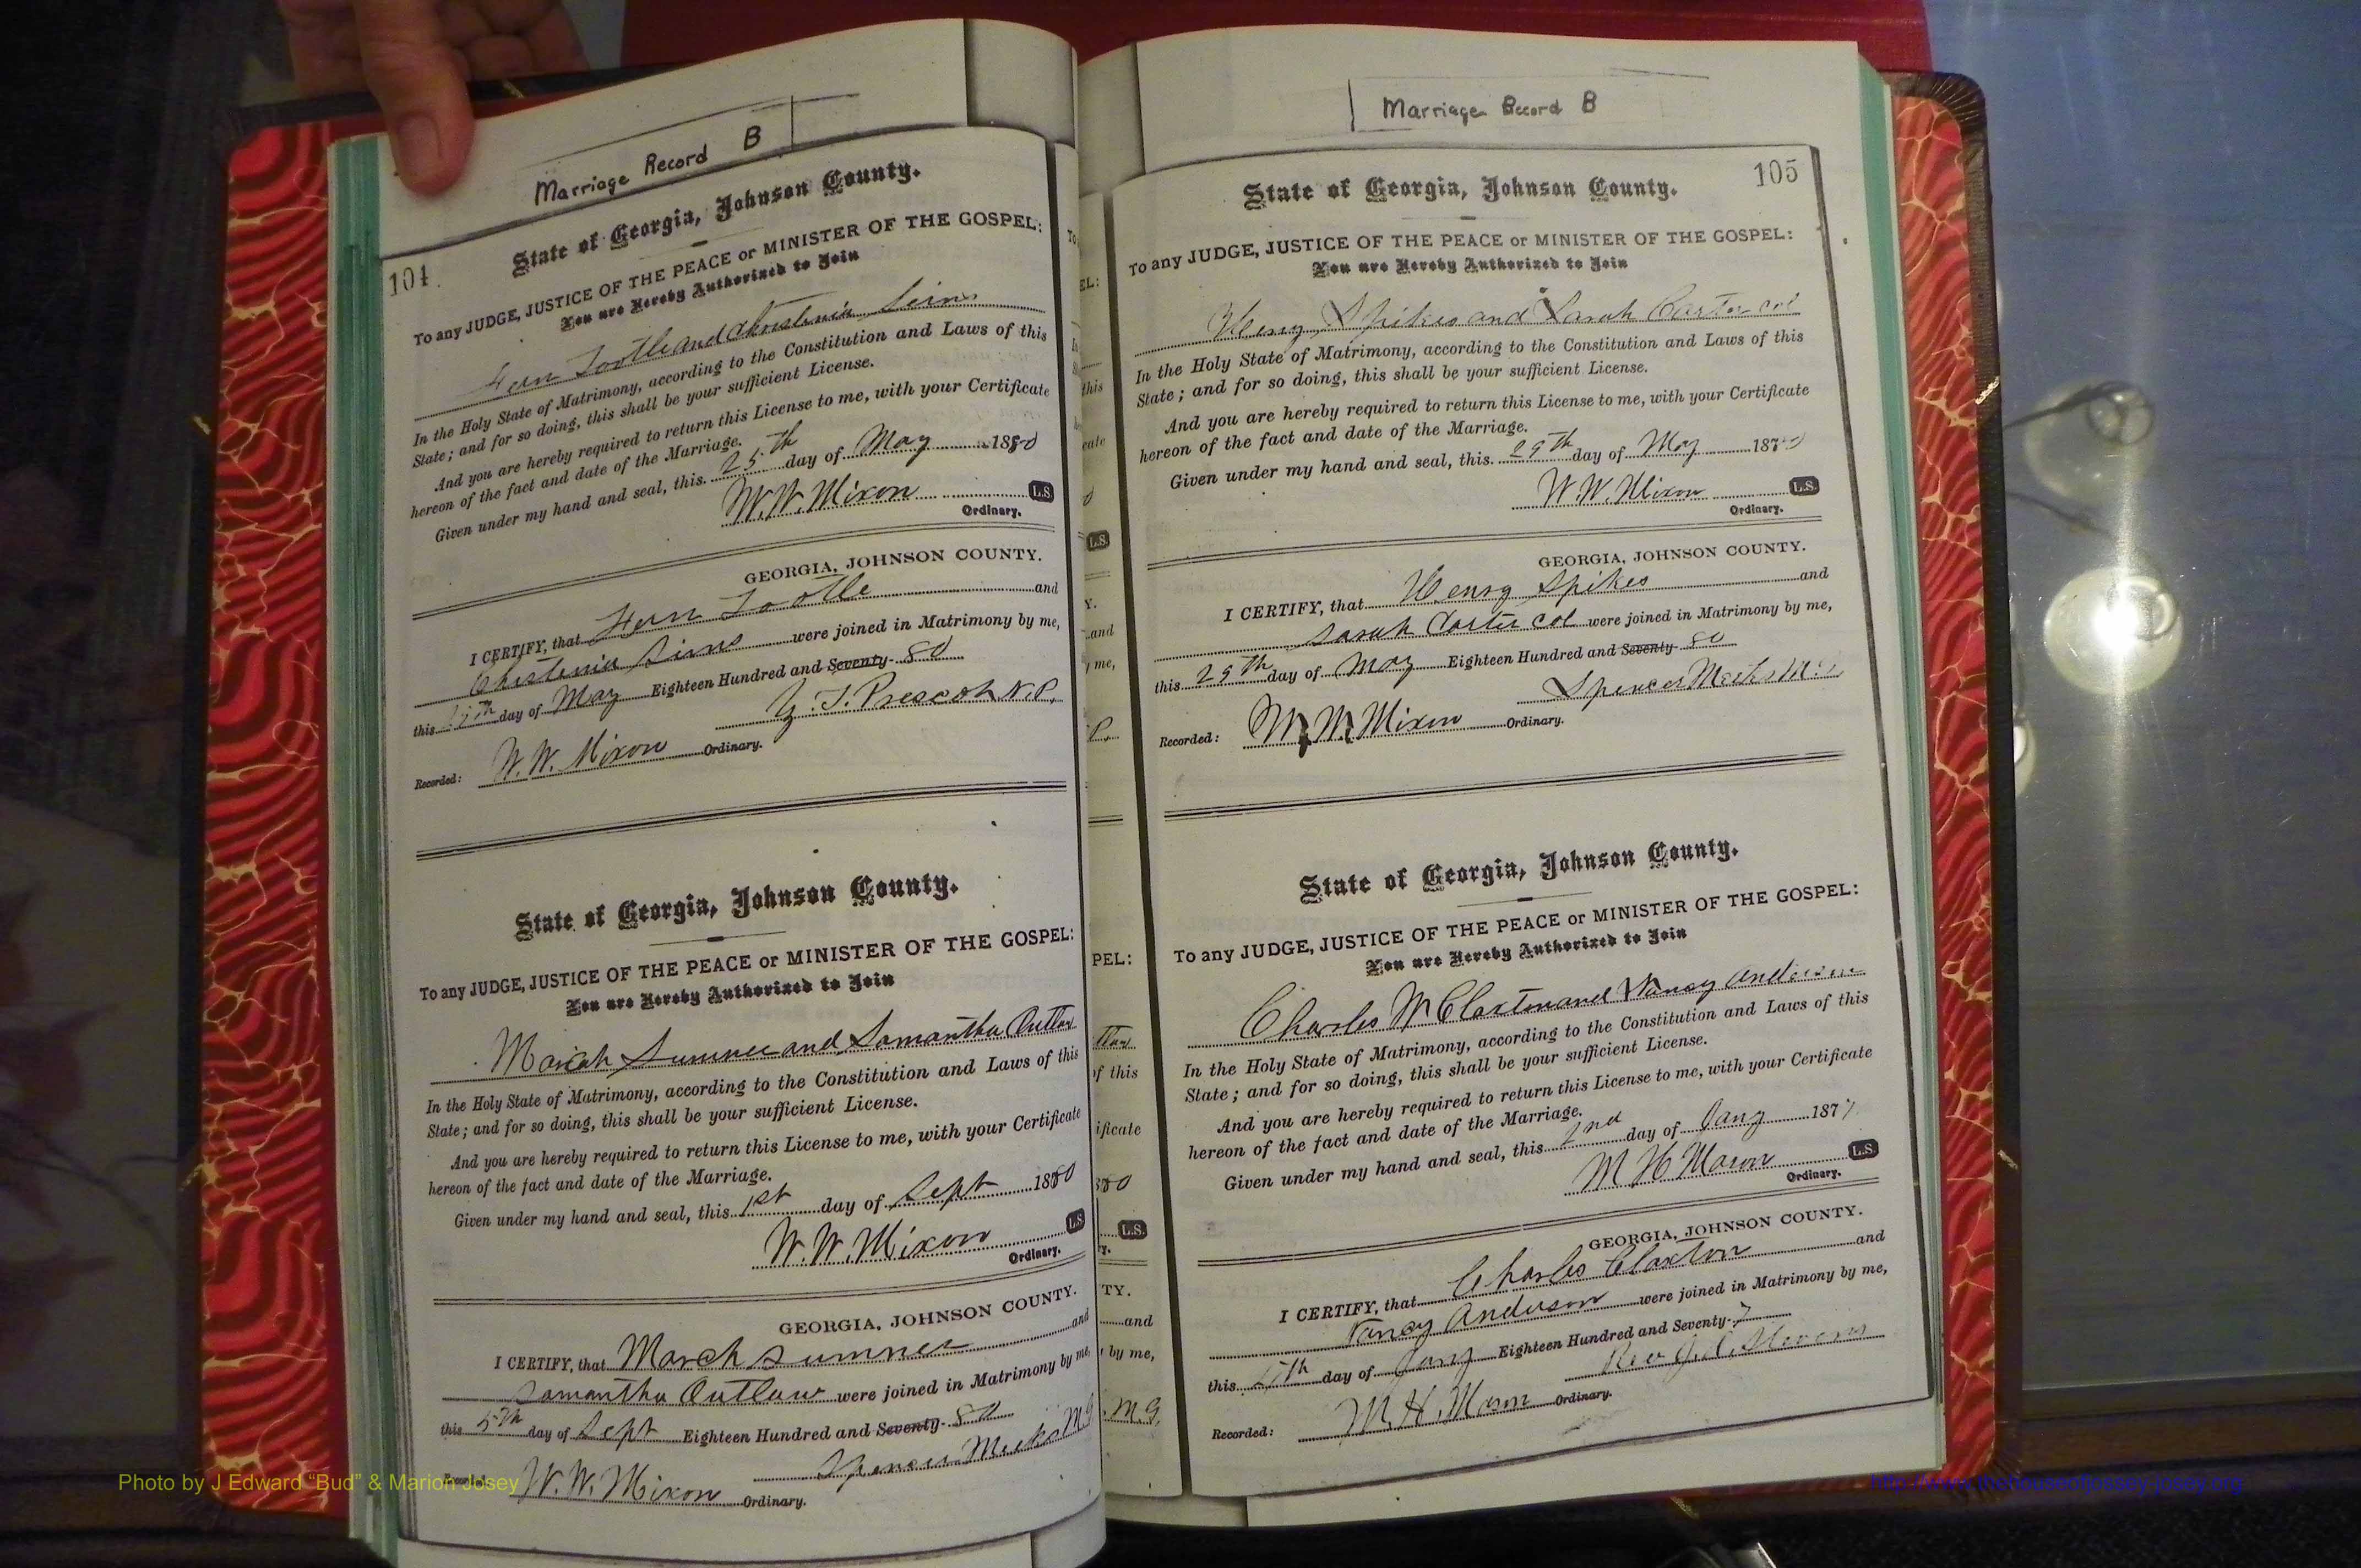 Marriage Record B
104
State of Georgia, Johnson County.
To any JUDGE, JUSTICE OF THE PEACE or MINISTER OF THE GOSPEL:
You are Hereby Authorized to Join
Tootle and Sims
In the Holy State of Matrimony, according to the Constitution and Laws of this
State; and for so doing, this shall be your sufficient License.
And you are hereby required to return this License to me, with your Certificate
hereon of the fact and date of the Marriage.
Given under my hand and seal, this 25th day of May 1880
W. W. Mixon L.S.
Ordinary.
GEORGIA, JOHNSON COUNTY.
I CERTIFY, that Tootle and
Sims were joined in Matrimony by me,
this day of May Eighteen Hundred and Seventy- 80
J. Prescott N.P.
Recorded: W. W. Mixon Ordinary.
State of Georgia, Johnson County.
To any JUDGE, JUSTICE OF THE PEACE or MINISTER OF THE GOSPEL:
You are Hereby Authorized to Join
March Sumner and Samantha Outlaw
In the Holy State of Matrimony, according to the Constitution and Laws of this
State; and for so doing, this shall be your sufficient License.
And you are hereby required to return this License to me, with your Certificate
hereon of the fact and date of the Marriage.
Given under my hand and seal, this 1st day of Sept 1880
W. W. Mixon L.S.
Ordinary.
GEORGIA, JOHNSON COUNTY.
I CERTIFY, that March Sumner and
Samantha Outlaw were joined in Matrimony by me,
this 5th day of Sept Eighteen Hundred and Seventy- 80
Spencer Meeks M G
W. W. Mixon Ordinary.
Marriage Record B
105
State of Georgia, Johnson County.
To any JUDGE, JUSTICE OF THE PEACE or MINISTER OF THE GOSPEL:
You are Hereby Authorized to Join
Henry Spikes and Sarah Carter col
In the Holy State of Matrimony, according to the Constitution and Laws of this
State; and for so doing, this shall be your sufficient License.
And you are hereby required to return this License to me, with your Certificate
hereon of the fact and date of the Marriage.
Given under my hand and seal, this 29th day of May
W. W. Mixon L.S.
Ordinary.
GEORGIA, JOHNSON COUNTY.
I CERTIFY, that Henry Spikes and
Sarah Carter col were joined in Matrimony by me,
this 29th day of May Eighteen Hundred and Seventy- 80
Spencer Meeks
Recorded: W. W. Mixon Ordinary.
State of Georgia, Johnson County.
To any JUDGE, JUSTICE OF THE PEACE or MINISTER OF THE GOSPEL:
You are Hereby Authorized to Join
Charles W Claxton and Nancy Anderson
In the Holy State of Matrimony, according to the Constitution and Laws of this
State; and for so doing, this shall be your sufficient License.
And you are hereby required to return this License to me, with your Certificate
hereon of the fact and date of the Marriage.
Given under my hand and seal, this 2nd day of Jany 1877
M H Mason L.S.
Ordinary.
GEORGIA, JOHNSON COUNTY.
I CERTIFY, that Charles Claxton and
Nancy Anderson were joined in Matrimony by me,
this day of Jany Eighteen Hundred and Seventy- 7
Rev Stevens
Recorded: M. H. Mason Ordinary.
Photo by J Edward “Bud” & Marion Josey
http://www.thehouseofjossey-josey.org